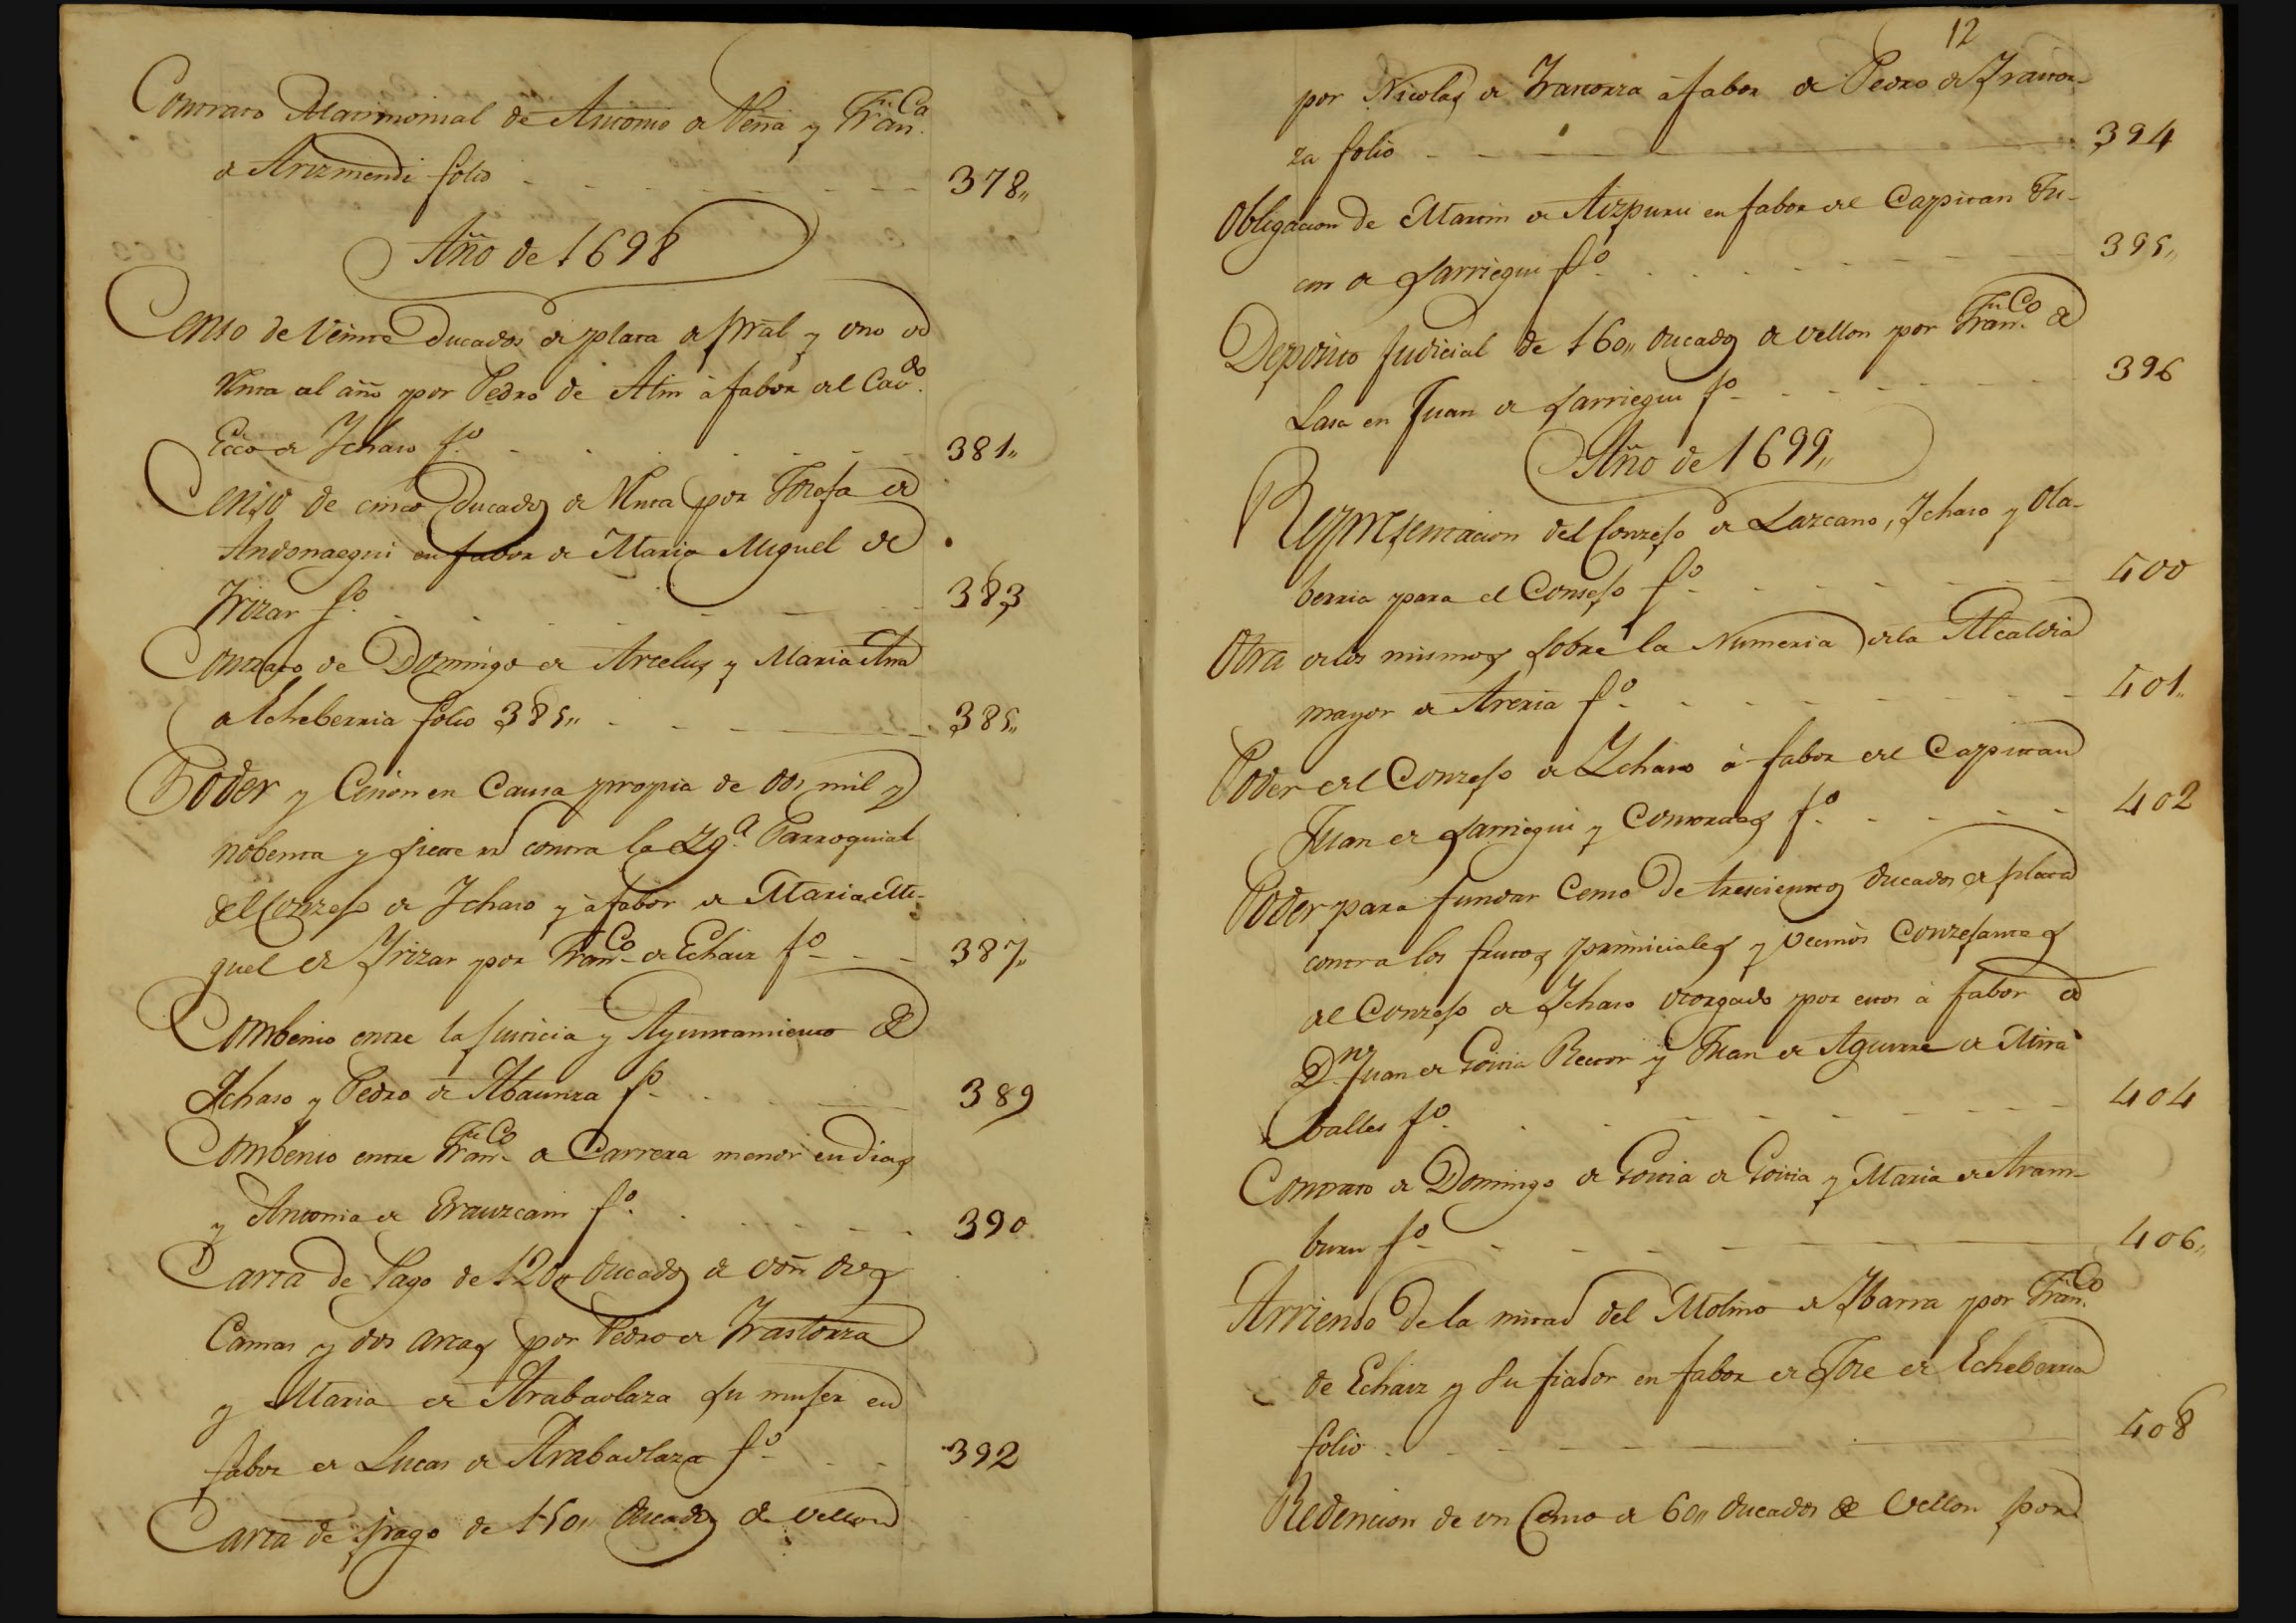 Contrato Matrimonial de Antonio de Peña y Fran.ca
de Arizmendi folio 378,,
Año de 1698
Censo de veinte Ducados de plata de pral y uno de
Renta al año por Pedro de Alin à fabor del Cavdo.
Ecco de Ichaso fo. 381,,
Censo de cinco Ducados de Renta por Josefa de
Andonaegui en fabor de Maria Miguel de
Yrizar fo. 383
Contrato de Domingo de Arcelus y Maria Ana
de Echeberria folio 385,, 385,,
Poder y Cesion en Causa propia de dos mil y
nobenta y siete rs contra la Yga. Parroquial
del Conzejo de Ichaso y à fabor de Maria Mi-
guel de Yrizar por Fran.co de Echaiz fo. 387,,
Combenio entre la Justicia y Ayuntamiento de
Ichaso y Pedro de Abaunza fo. 389
Combenio entre Fran.co de Carrera menor en dias
y Antonia de Erauzcain fo. 390
Carta de Pago de 1200 ducados de von dos
Camas y dos arcas por Pedro de Yrastorza
y Maria de Arabaolaza su mujer en
fabor de Lucas de Arabaolaza fo. 392
Carta de pago de 150,, ducados de vellon
12
por Nicolas de Yrastorza à fabor de Pedro de Yrastor-
za folio 394
Obligacion de Martin de Aizpuru en fabor del Capitan Ju-
an de Larriegui fo. 395,,
Deposito Judicial de 160,, ducados de vellon por Fran.co de
Lasa en Juan de Larriegui fo. 396
Año de 1699,,
Representacion del Conzejo de Lazcano, Ichaso y Ola-
berria para el Consejo fo. 400
Otra de los mismos sobre la Numeria de la Alcaldia
mayor de Areria fo. 401,,
Poder del Conzejo de Ychaso à fabor del Capitan
Juan de Larriegui y Consortes fo. 402
Poder para fundar Censo de trescientos ducados de plata
contra los frutos primiciales y vecinos Conzejantes
del Conzejo de Ichaso otorgado por estos à fabor de
Dn. Juan de Goitia Rector y Juan de Aguirre de Mira
balles fo. 404
Contrato de Domingo de Goitia de Goitia y Maria de Aram-
buru fo. 406,,
Arriendo de la mitad del Molino de Ybarra por Fran.co
de Echaiz y su fiador en fabor de Jose de Echeberria
folio 408
Redencion de un Censo de 60,, ducados de Vellon por